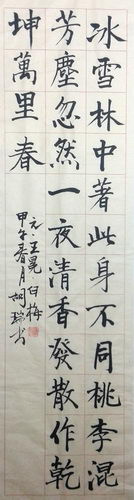 冰雪林中著此身不同桃李混
芳塵忽然一夜清香發散作乾
坤萬里春
元王冕白梅
甲午春月